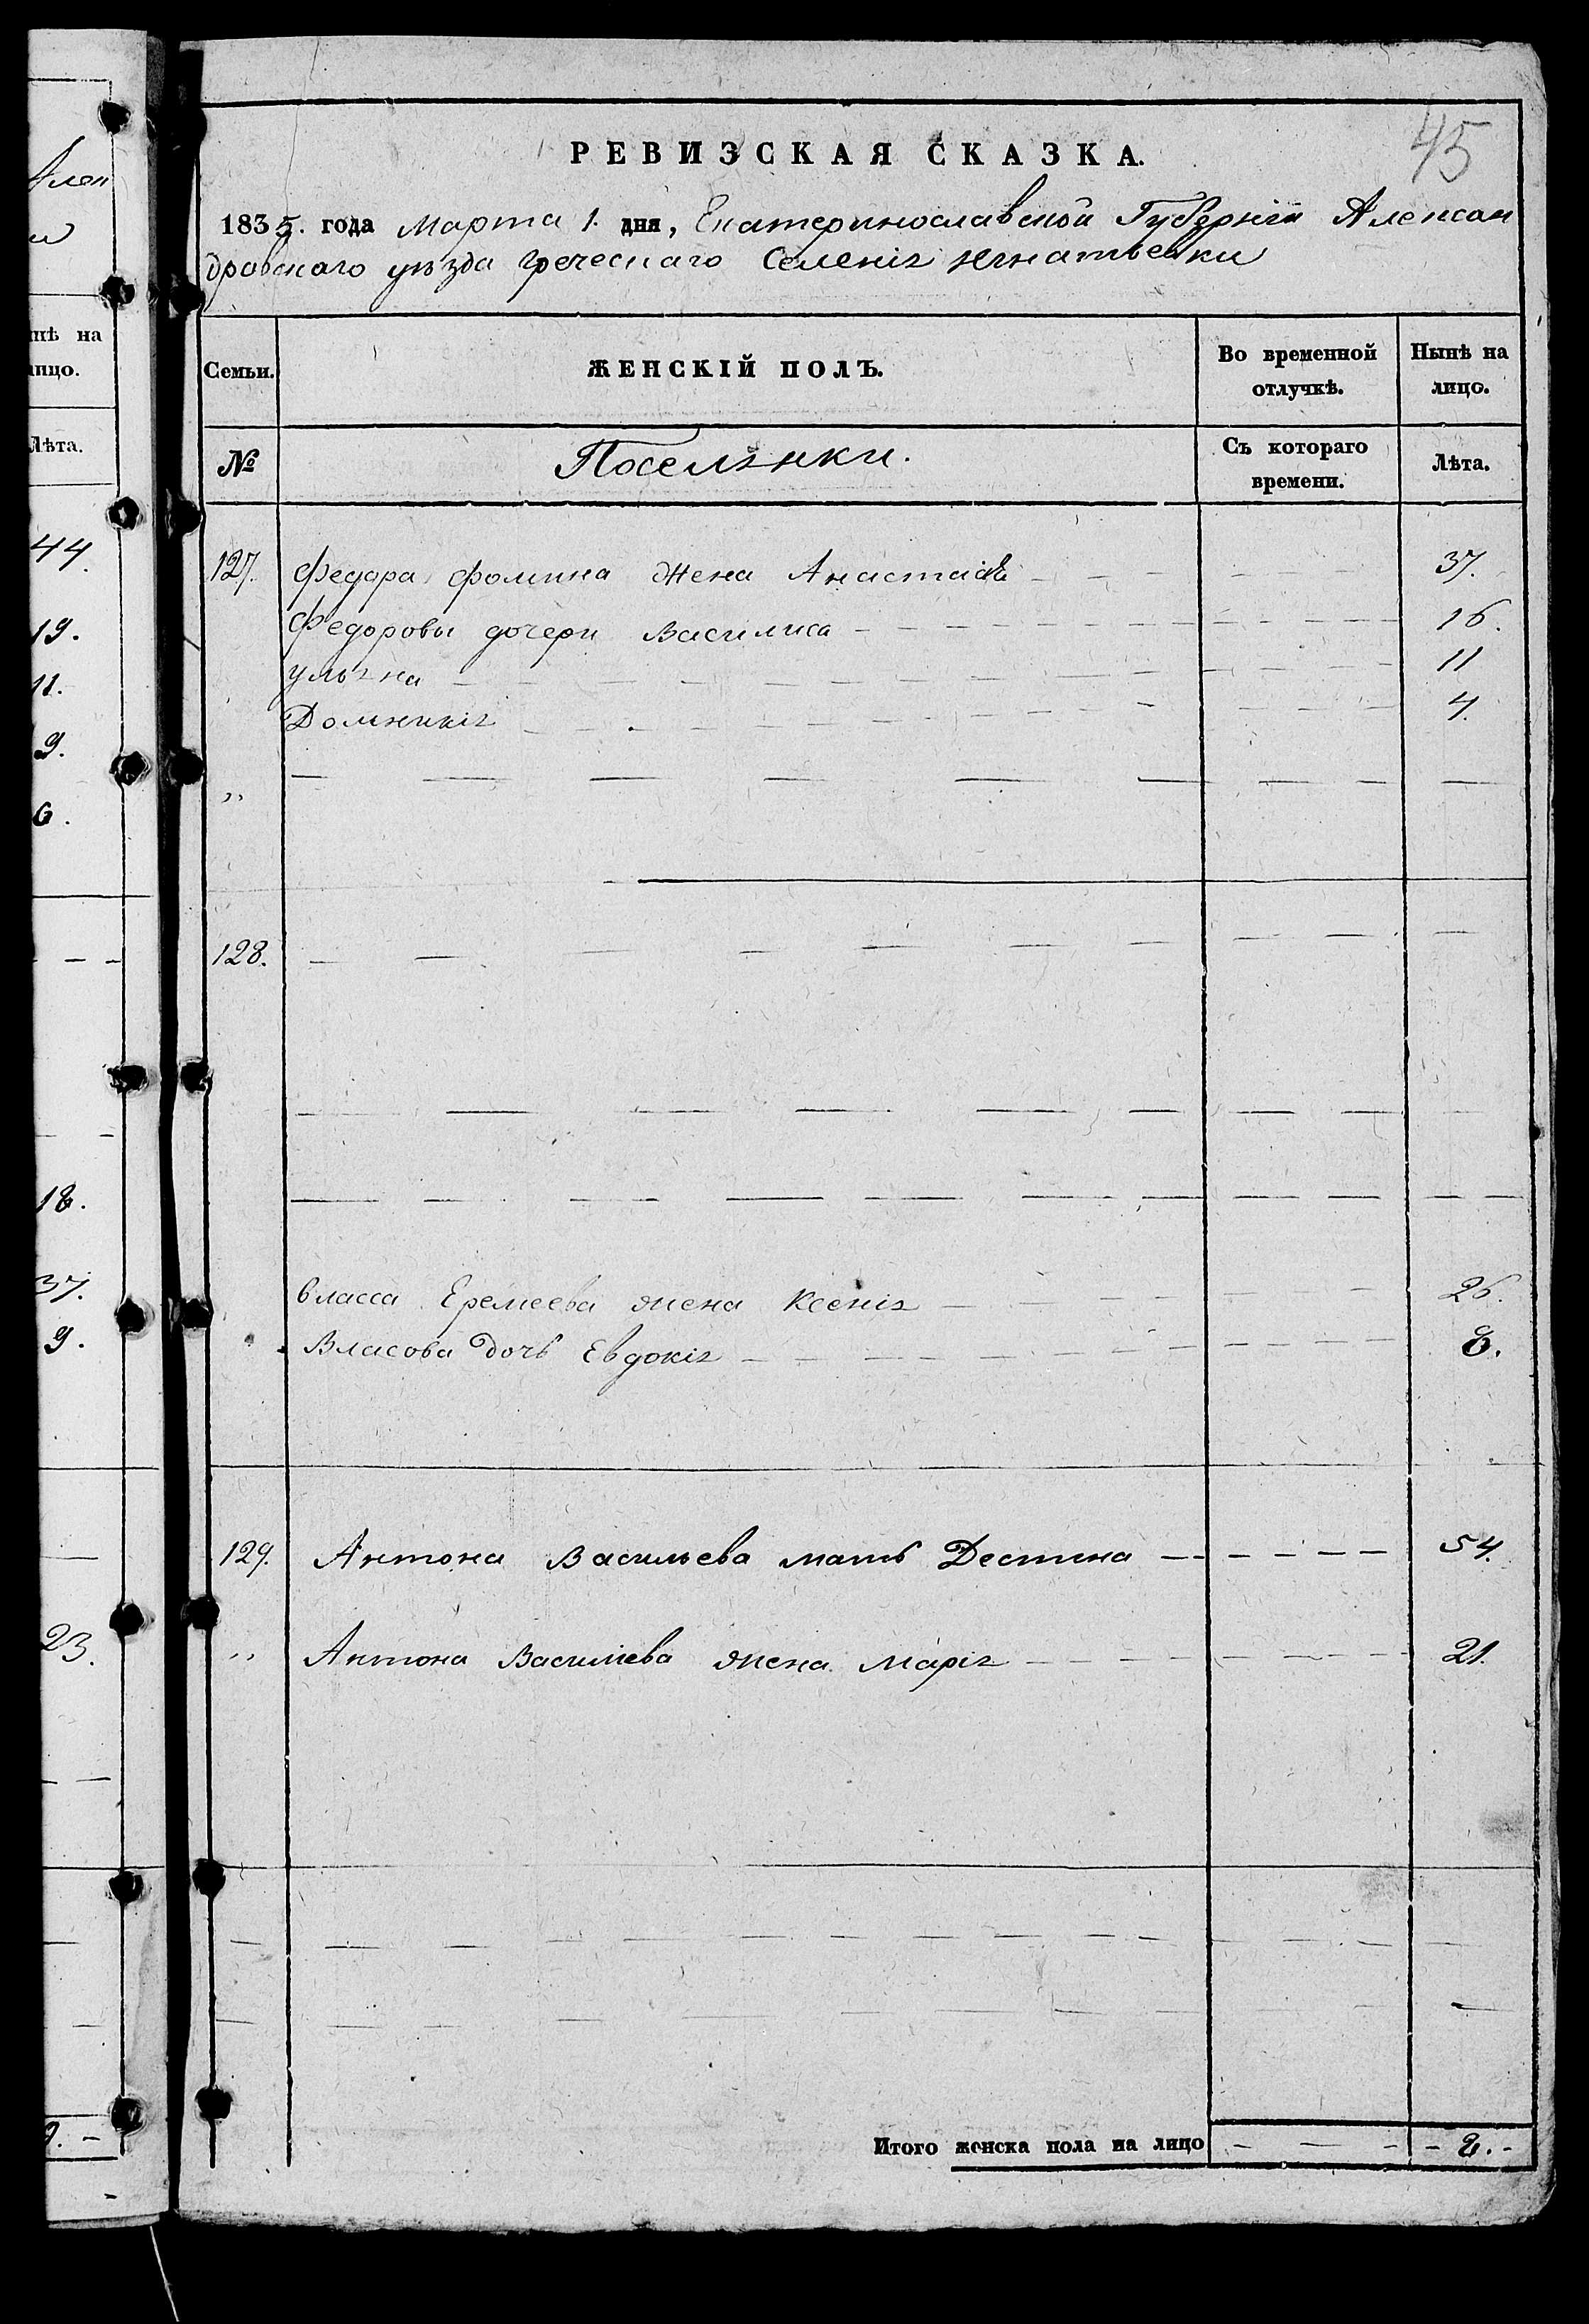 Ален
и
нѣ на
лицо.
Лѣта.
44.
19.
11.
9.
6.
18.
37.
9.
23.
9. -
45
РЕВИЗСКАЯ СКАЗКА.
1835. года Марта 1. дня, Екатеринославской Губерніи Алексан
дровскаго уѣзда Греческаго Селенія Игнатьевки
Семьи. ЖЕНСКІЙ ПОЛЪ. Во временной отлучкѣ. Нынѣ на лицо.
№ Поселянки. Съ котораго времени. Лѣта.
127. Федора Фомина Жена Анастасія 37.
Федоровы дочери Василиса 16.
Ульяна 11
Домникія 4.
„
128.
Власса Еремеева жена Ксенія 26.
Власова Дочь Евдокія 8.
129. Антона Васильева мать Дестина 54.
„ Антона Васильева жена Марія 21.
Итого женска пола на лицо - 8. -